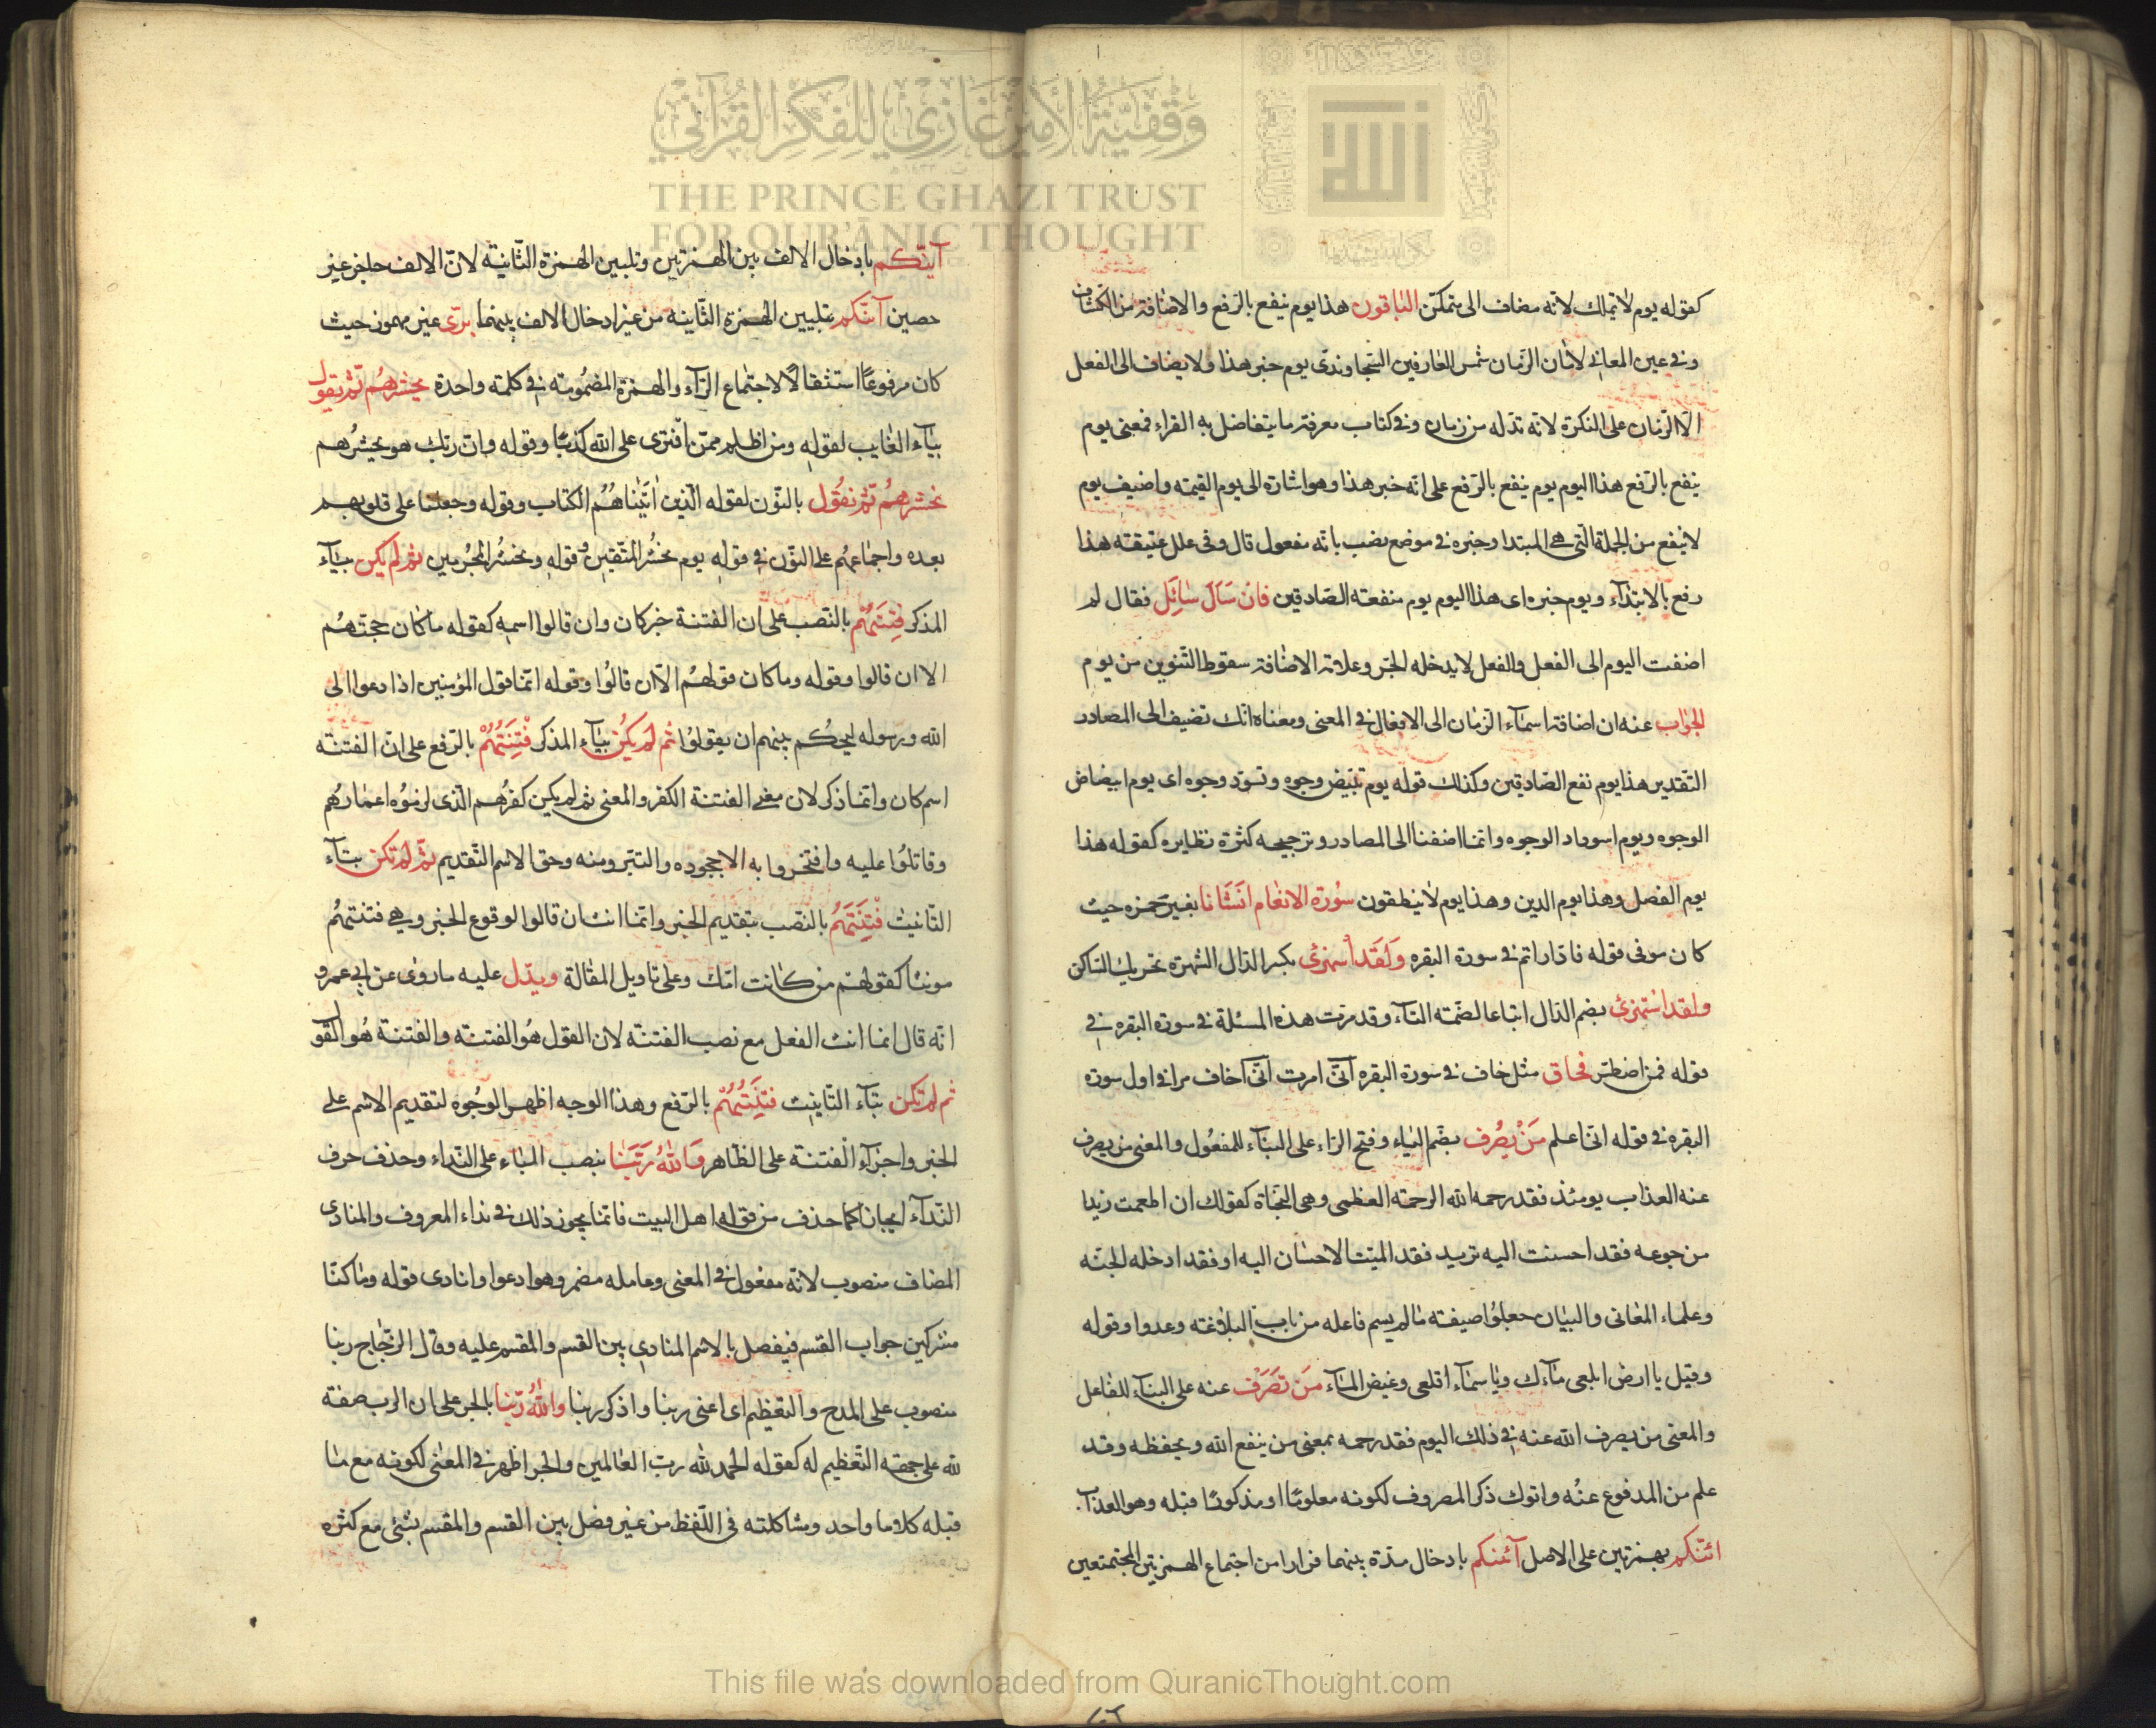 وقفية الأمير غازي للفكر القرآني
THE PRINCE GHAZI TRUST
FOR QUR'ĀNIC THOUGHT
كقوله يوم لا تملك لانه مضاف الى متمكن الباقون هذا يوم ينفع بالرفع والاضافة من الكشاف
وفي عين المعاني لانسان الزمان شمس العارفين السجاوندى يوم خبر هذا ولا يضاف الى الفعل
الا الزمان على النكرة لانه تدله من زمان وفى كتاب معرفة ما يتفاضل به القراء فمعنى يوم
ينفع بالرفع هذا اليوم يوم ينفع بالرفع على انه خبر هذا وهو اشارة الى يوم القيمة واضيف يوم
لا ينفع من الجملة التى هي المبتدا وخبره في موضع نصب بانه مفعول قال وفى علل عتيقته هذا
رفع بالابتداء ويوم خبره اى هذا اليوم يوم منفعة الصادقين فان سال سائل فقال لم
اضفت اليوم الى الفعل والفعل لا يدخله الجر وعلامة الاضافة سقوط التنوين من يوم
الجواب عنه ان اضافة اسماء الزمان الى الافعال في المعنى ومعناه انك تضيف الى المصادر
التقدير هذا يوم نفع الصادقين وكذلك قوله يوم تبيض وجوه وتسود وجوه اى يوم ابيضاض
الوجوه ويوم اسوداد الوجوه وانما اضفنا الى المصادر وترجيحه كثرة نظايره كقوله هذا
يوم الفصل وهذا يوم الدين وهذا يوم لا ينطقون سورة الانعام انشانا بغير همزه حيث
كان سوفى قوله فادارأتم فى سورة البقره ولقد استهزئ بكسر الدال الشهرة تحريك الساكن
ولقد استهزئ بضم الدال اتباعا لضمة التاء وقد مرت هذه المسئلة في سورة البقره في
قوله فمن اضطر فحاق مثل خاف في سورة البقره انى امرت انى اخاف مر في اول سورة
البقره فى قوله انى اعلم من يصرف بضم الياء وفتح الراء على البناء للمفعول والمعنى من يصرف
عنه العذاب يومئذ فقد رحمه الله الرحمة العظمى وهى النجاة كقولك ان اطعمت زيدا
من جوعه فقد احسنت اليه تريد فقد اتممت الاحسان اليه او فقد ادخله الجنه
وعلماء المعانى والبيان جعلوا صيغة ما لم يسم فاعله من باب البلاغه وعدوا وقوله
وقيل يا ارض ابلعى ماءك ويا سماء اقلعى وغيض الماء من تصرف عنه على البناء للفاعل
والمعنى من يصرف الله عنه في ذلك اليوم فقد رحمه بمعنى من ينفع الله ويحفظه وقد
علم من المدفوع عنه واترك ذكر المصروف لكونه معلوما او مذكورا قبله وهو العذاب
ائنكم بهمزتين على الاصل آئنكم بادخال مدة بينهما فرارا من اجتماع الهمزتين المجتمعتين
آينكم بادخال الالف بين الهمزتين وتليين الهمزة الثانية لان الالف حاجز غير
حصين آينكم بتليين الهمزة الثانية من غير ادخال الالف بينهما برى غير مهموز حيث
كان مرفوعا استثقالا لاجتماع الراء والهمزة المضمومة في كلمة واحدة يحشرهم ثم يقول
بياء الغايب لقوله ومن اظلم ممن افترى على الله كذبا وقوله وان ربك هو يحشرهم
نحشرهم ثم نقول بالنون لقوله الذين اتيناهم الكتاب وقوله وجعلنا على قلوبهم
بعده واجماعهم على النون في قوله يوم نحشر المتقين وقوله ونحشر المجرمين ثم لم يكن بياء
المذكر فتنتهم بالنصب على ان الفتنة خبر كان وان قالوا اسمه كقوله ما كان حجتهم
الا ان قالوا وقوله وما كان قولهم الا ان قالوا وقوله انما قول المؤمنين اذا دعوا الى
الله ورسوله ليحكم بينهم ان يقولوا ثم لم يكن بياء المذكر فتنتهم بالرفع على ان الفتنة
اسم كان وانما ذكر لان معنى الفتنة الكفر والمعنى ثم لم يكن كفرهم الذى لزموه اعمارهم
وقاتلوا عليه وافتخروا به الا جحوده والتبرؤ منه وحق الاسم التقديم ثم لم تكن بتاء
التانيث فتنتهم بالنصب بتقديم الخبر وانما انث ان قالوا لوقوع الخبر وهي فتنتهم
مونثا كقولهم من كانت امك وعلى تاويل المقالة ويدل عليه ما روى عن ابي عمرو
انه قال انما انث الفعل مع نصب الفتنة لان القول هو الفتنة والفتنة هو القو
ثم لم تكن بتاء التانيث فتنتهم بالرفع وهذا الوجه اظهر الوجوه لتقديم الاسم على
الخبر واجراء الفتنة على الظاهر والله ربنا بنصب الباء على النداء وحذف حرف
النداء ايجاز كما حذف من قوله اهل البيت فانما يجوز ذلك في نداء المعروف والمنادى
المضاف منصوب لانه مفعول في المعنى وعامله مضمر وهو ادعوا وانادى قوله وما كنا
مشركين جواب القسم فيفصل بالاسم المنادى بين القسم والمقسم عليه وقال الزجاج ربنا
منصوب على المدح والتعظيم اى اعنى ربنا واذكر ربنا والله ربنا بالجر على ان الرب صفة
لله على جهة التعظيم له كقوله الحمد لله رب العالمين والجر اظهر في المعنى لكونه مع ما
قبله كلاما واحد ومشاكلته فى اللفظ من غير فصل بين القسم والمقسم بشئ مع كثرة
This file was downloaded from QuranicThought.com